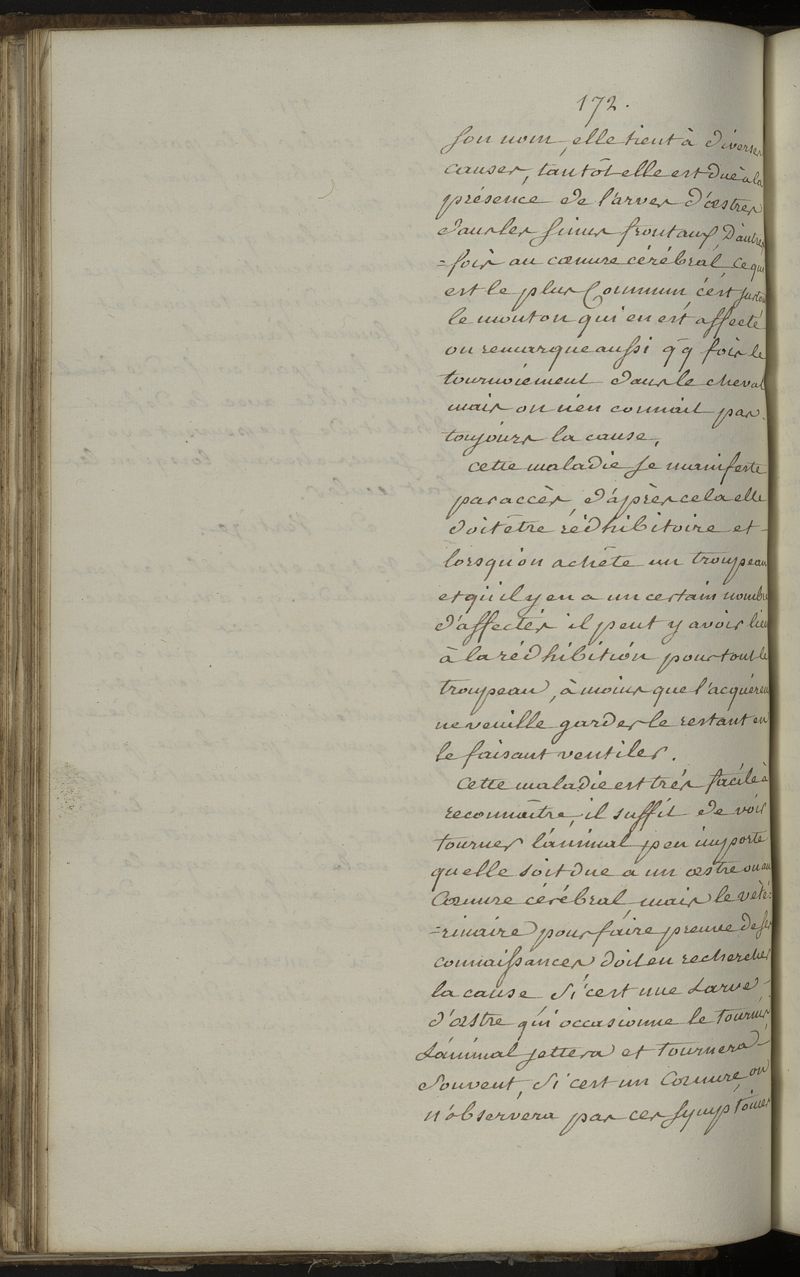 172.
son nom, elle tient à diverses
causes, tantôt elle est due à la
présence de larves d'œstres
dans les sinus frontaux D'autres
=fois au cœnure cérébral, ce qui
est le plus Commun c'est surtout
le mouton qui en est affecté
on remarque aussi qq fois le
tournoiement dans le cheval
mais on n'en connait pas
toujours la cause,
cette maladie se manifeste
par accès d'après cela elle
doit être rédhibitoire et
lorsqu'on achète un troupeau
et qu'il y en a un certain nombre
d'affectés il peut y avoir lieu
à la rédhibition pour tout le
troupeau, à moins que l'acquéreur
ne veuille garder le restant en
le faisant ventiler.
Cette maladie est très facile à
reconnaître, il suffit de voir
tourner l'animal peu importe
quelle soit due a un œstre ou au
Cœnure cérébral mais le vété=
=rinaire pour faire preuve de ses
connaissances doit en rechercher
la cause Si c'est une Larve
d'œstre qui occasionne le tournis
L'animal jettera et tournera
souvent, Si c'est un Cœnure, on
n'observera pas ces symptômes